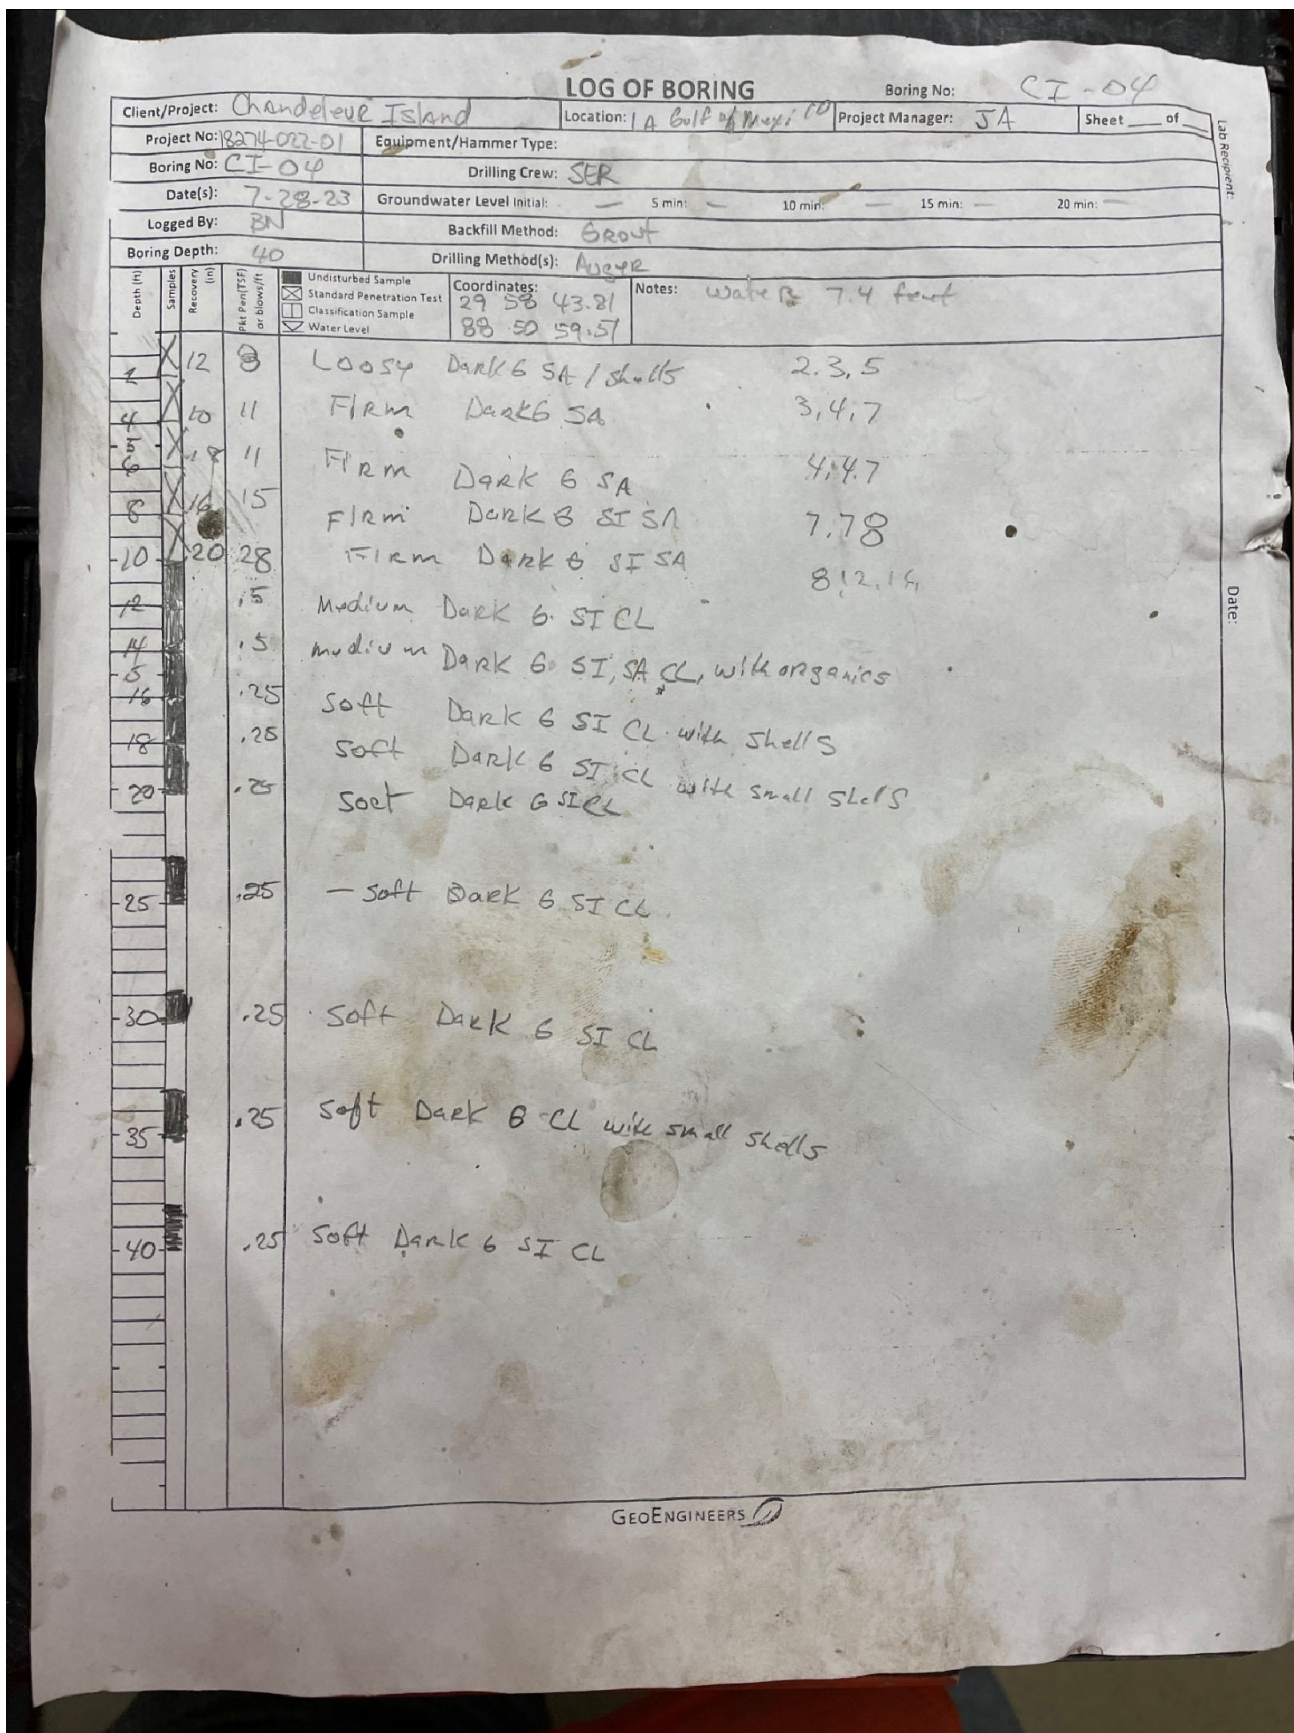 LOG OF BORING
Boring No: CI-04
Client/Project: Chandeleur Island Location: LA Gulf of Mexico Project Manager: JA Sheet ___ of ___
Lab Recipient:
Project No: 18274-022-01 Equipment/Hammer Type:
Boring No: CI-04 Drilling Crew: SER
Date(s): 7-28-23 Groundwater Level Initial: — 5 min: — 10 min: — 15 min: — 20 min: —
Logged By: BN Backfill Method: Grout
Boring Depth: 40 Drilling Method(s): Auger
Depth (ft) Samples Recovery (in) Pkt Pen(TSF) or blows/ft
Undisturbed Sample
Standard Penetration Test
Classification Sample
Water Level
Coordinates:
29 58 43.81
88 50 59.51
Notes: Water 7.4 feet
2 12 8 Loose Dark G SA / shells 2.3.5
4 10 11 Firm Dark G SA 3,4,7
5
6 18 11 Firm Dark G SA 4,4.7
8 16 15 Firm Dark G SI SA 7.78
10 20 28 Firm Dark G SI SA 812.16
12 .5 Medium Dark G SI CL
14 .5 medium Dark G SI, SA CL, with organics
16 .25 Soft Dark G SI CL with shells
18 .25 Soft Dark G SI CL with small shells
20 .25 Soft Dark G SI CL
25 .25 — Soft Dark G SI CL
30 .25 Soft Dark G SI CL
35 .25 Soft Dark G CL with small shells
40 .25 Soft Dark G SI CL
Date:
GEOENGINEERS